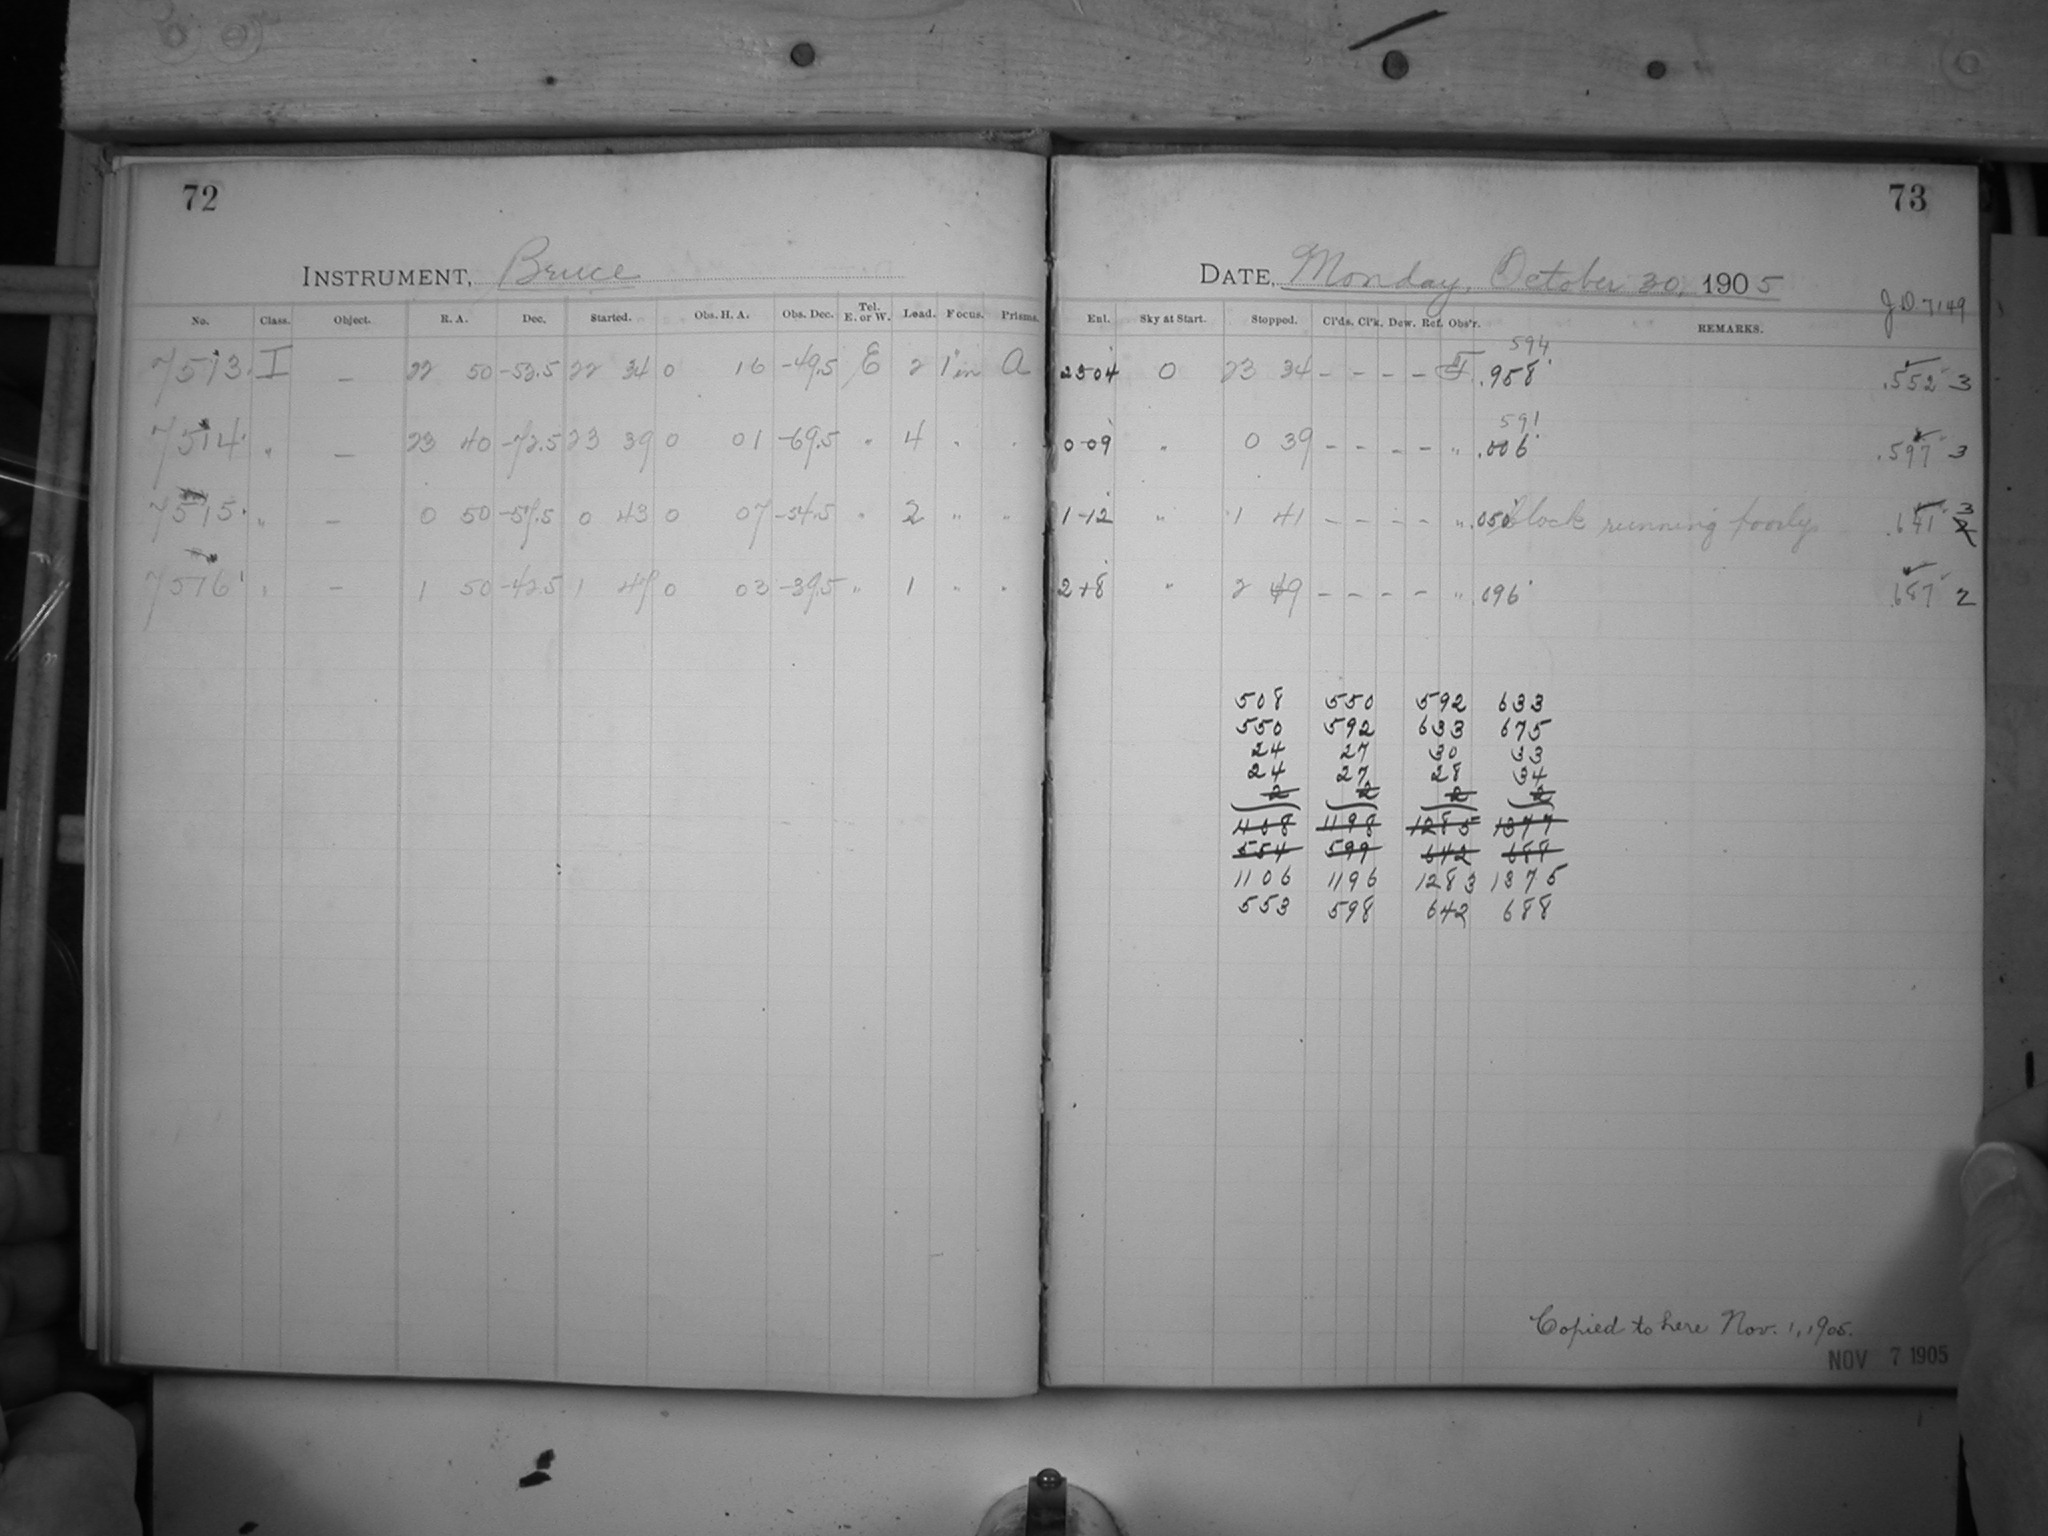 72
73
INSTRUMENT, Bruce
DATE, Monday, October 30, 1905
J.D. 7149
No. Class. Object. R. A. Dec. Started. Obs. H. A. Obs. Dec. Tel. E. or W. Load. Focus. Prisms. Ent. Sky at Start. Stopped. Cl'ds. Cl'k. Dew. Ref. Obs'r. REMARKS.
594
7513 I — 22 50 -53.5 22 34 0 16 -49.5 E 2 1 in A 2304 0 23 34 — — — — .958 .552 3
591
7514 " — 23 40 -72.5 23 39 0 01 -69.5 " 4 " " 0-09 " 0 39 — — — — " .006 .597 3
7515 " — 0 50 -57.5 0 43 0 07 -54.5 " 2 " " 1-12 " 1 41 — — — — " .050 Clock running poorly .641 3
2
7516 " — 1 50 -42.5 1 47 0 03 -39.5 " 1 " " 2+8 " 2 49 — — — — " .096 .687 2
508 550 592 633
550 592 633 675
24 27 30 33
24 27 28 34
2 2 2 2
1108 1198 1285 1377
554 599 642 688
1106 1196 1283 1375
553 598 642 688
Copied to here Nov. 1, 1905.
NOV 7 1905